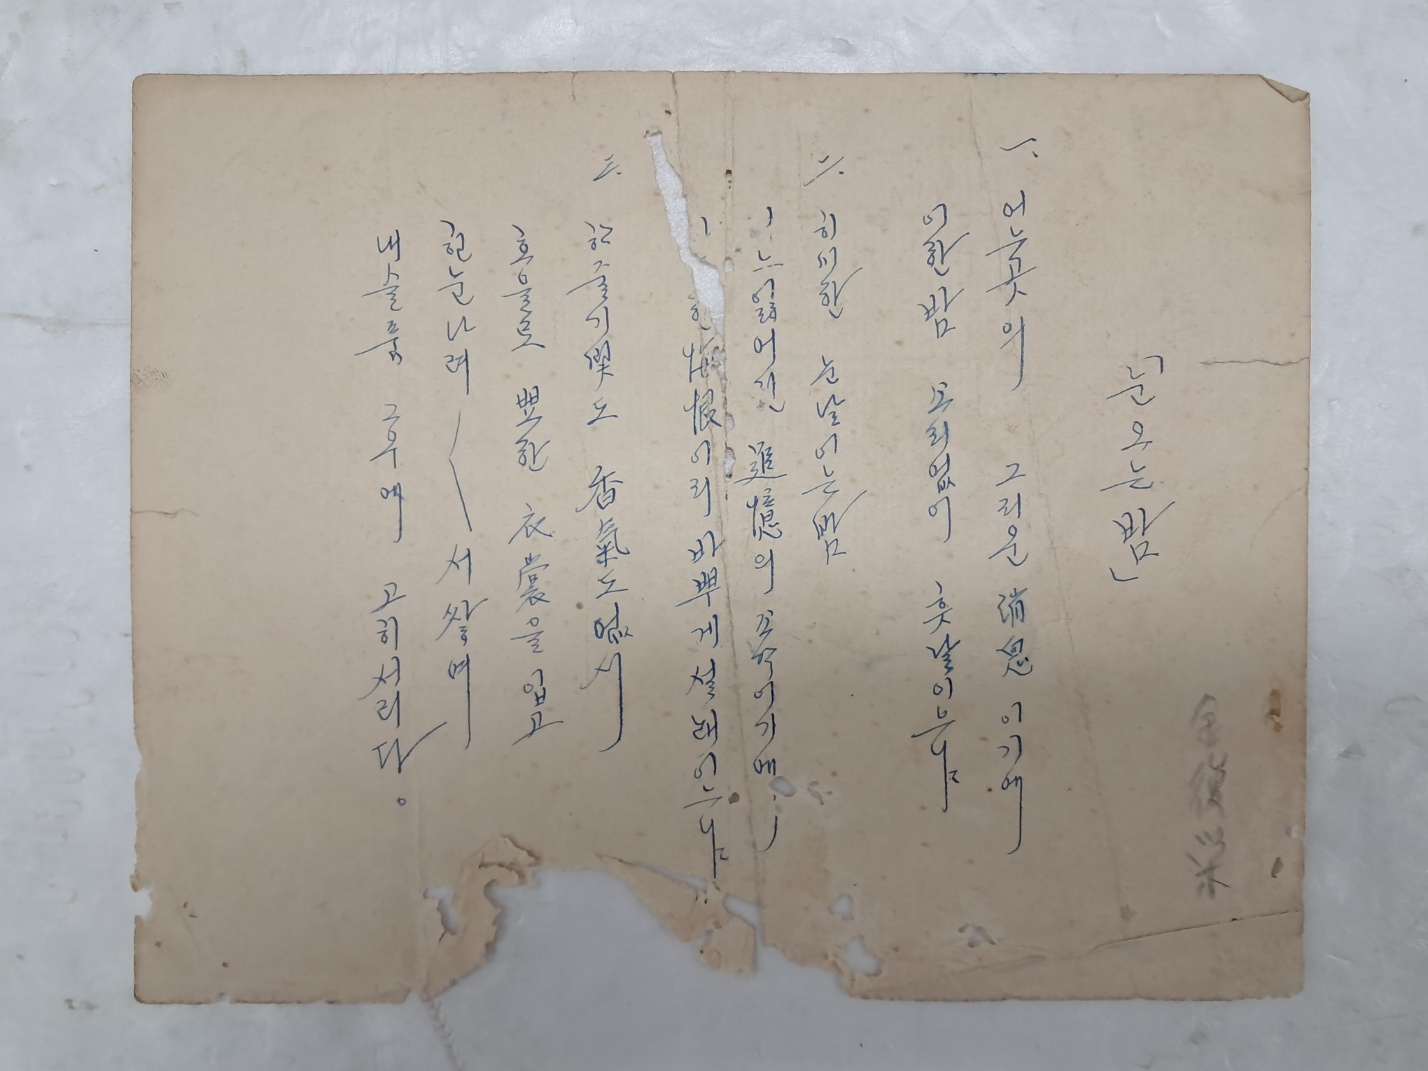 「눈오는밤」
一. 어늣곳의 그리운 消息이기에
이한밤 소리없이 훗날이느냐
二. 히미한 눈날이는밤
느잃어진 追憶의 꼬학이기에
한 悔恨이리 바뿌게 설래이느냐
三. 한줄기빛도 香氣도없시
호을로 뽀한 衣裳을 입고
힌눈나려 서쌓며
내슬품 그우에 고히서리다。